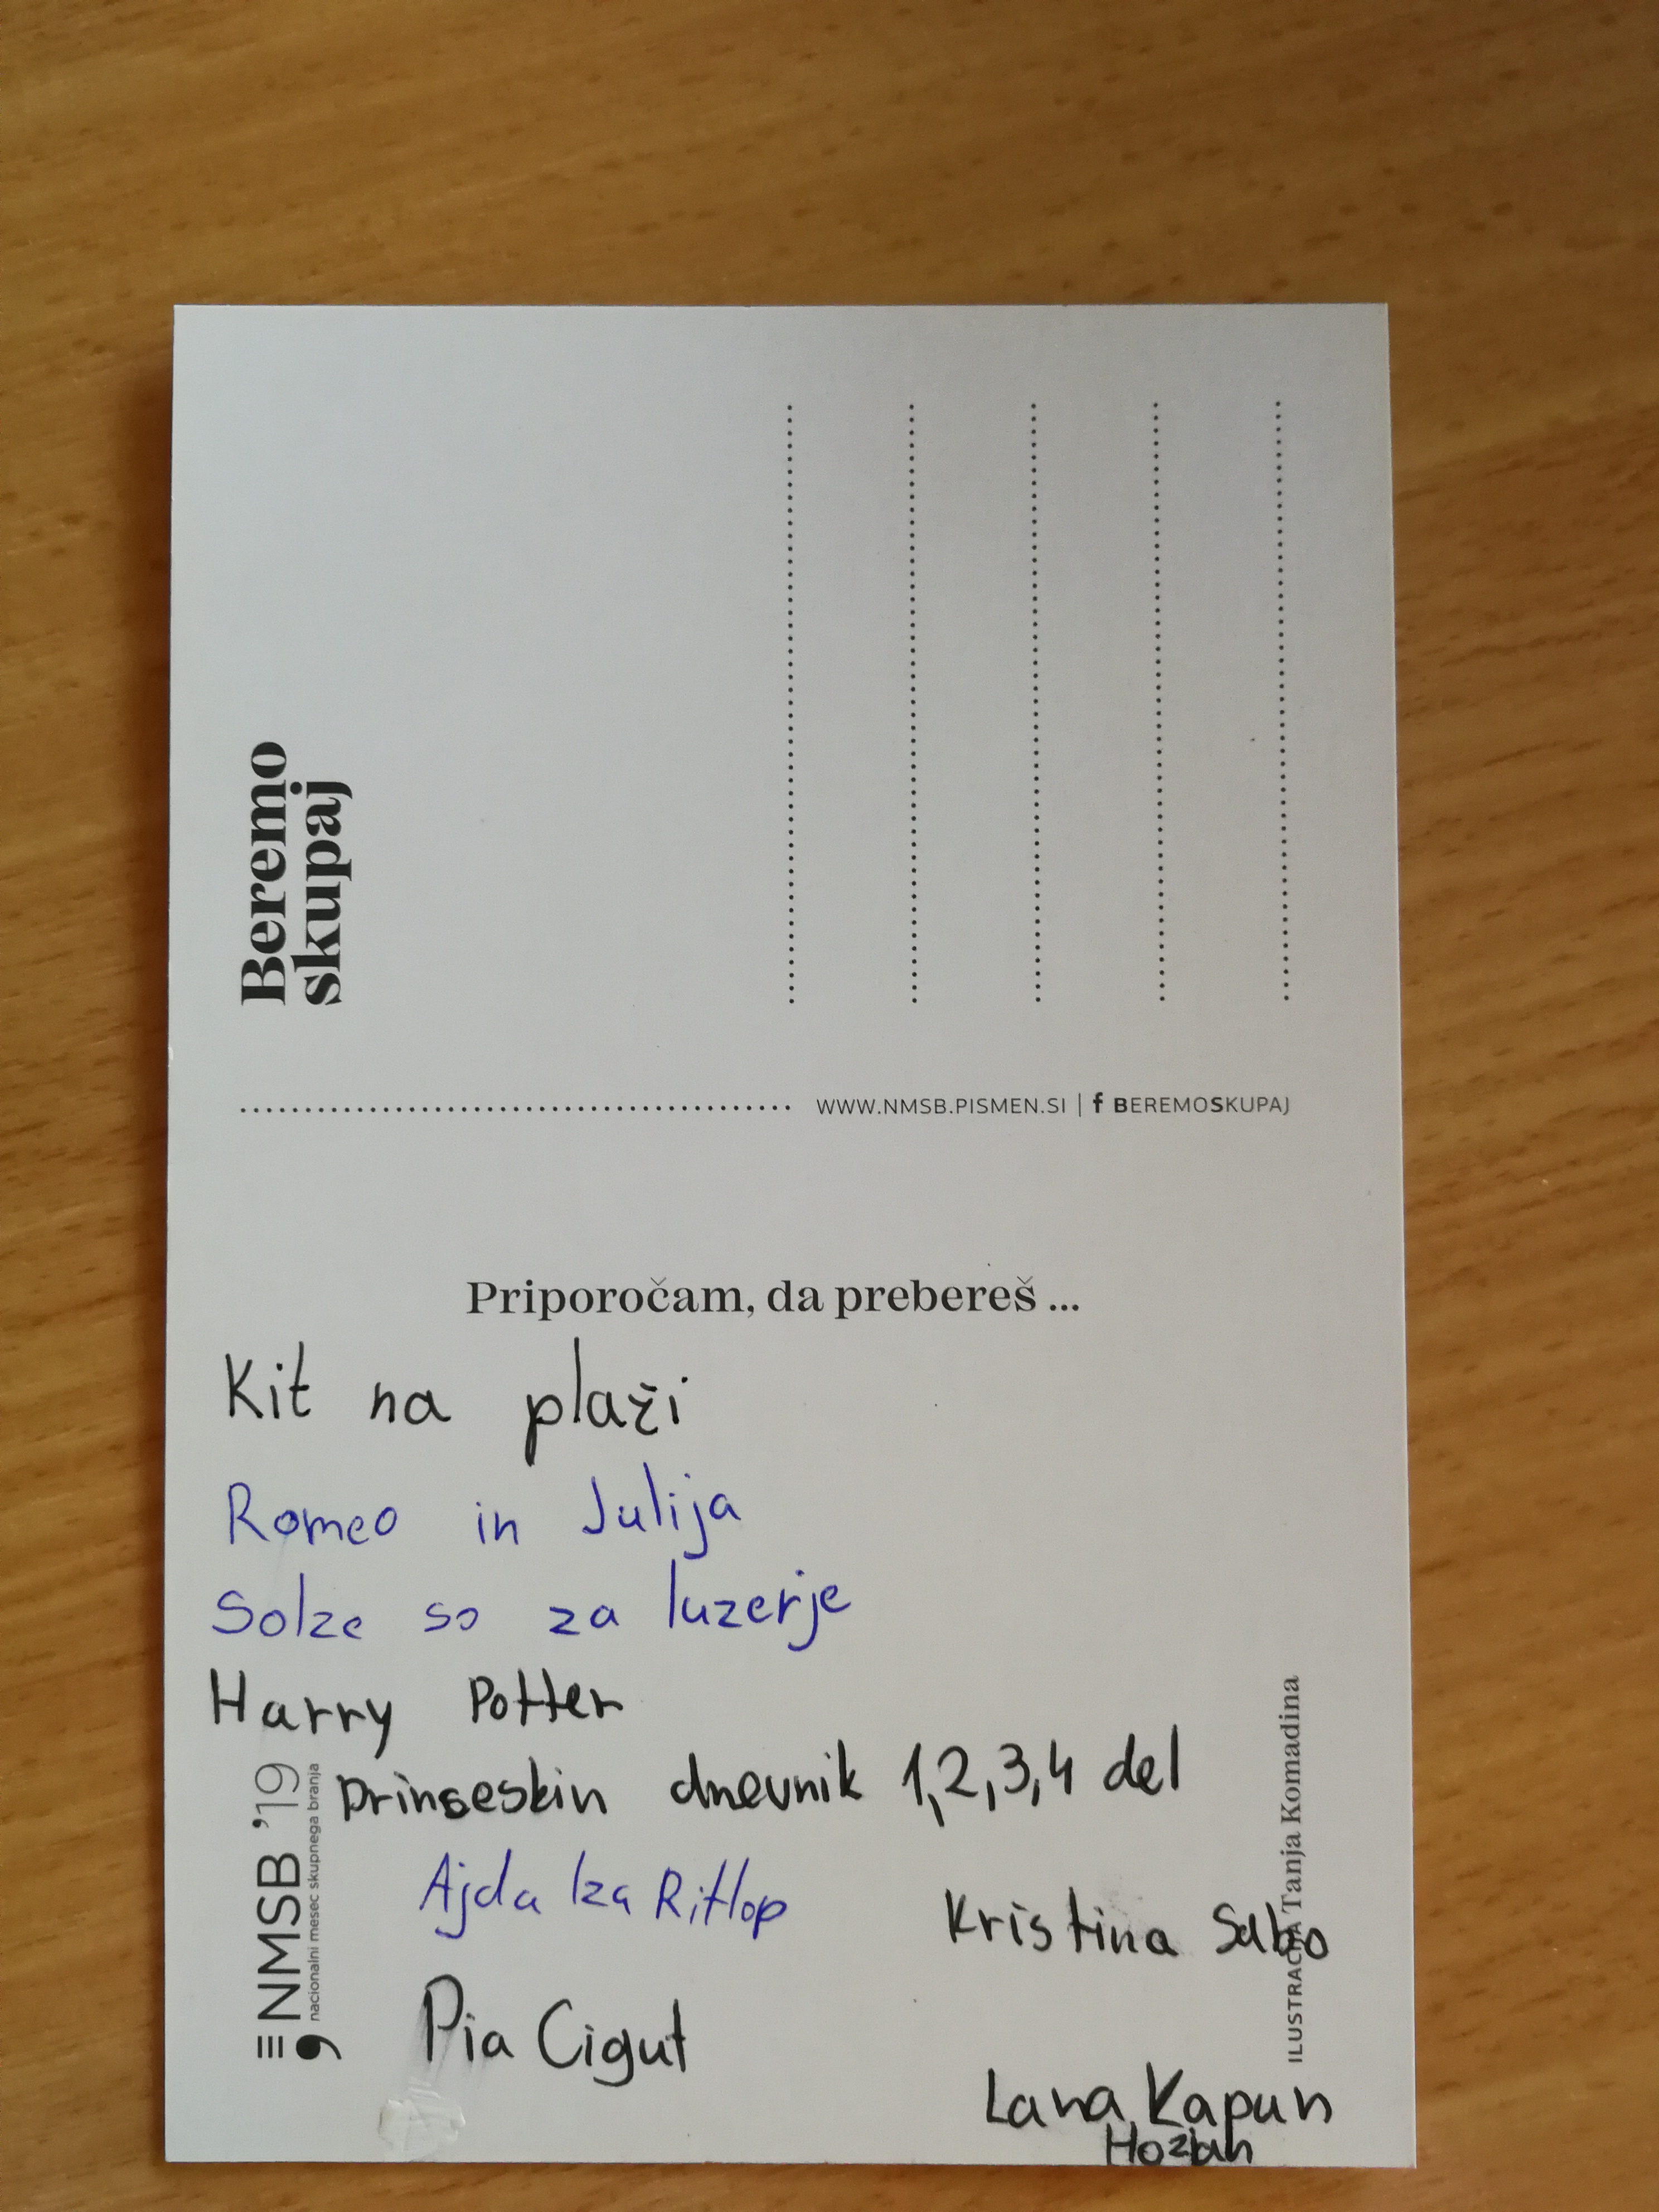 Beremo
skupaj
WWW.NMSB.PISMEN.SI | f BEREMOSKUPAJ
Priporočam, da prebereš ...
Kit na plaži
Romeo in Julija
Solze so za luzerje
Harry Potter
Prinseskin dnevnik 1,2,3,4 del
Ajda Iza Ritlop
Kristina Sabo
Pia Cigut
Lana Kapun
Hozjan
NMSB '19
nacionalni mesec skupnega branja
ILUSTRACIJA Tanja Komadina